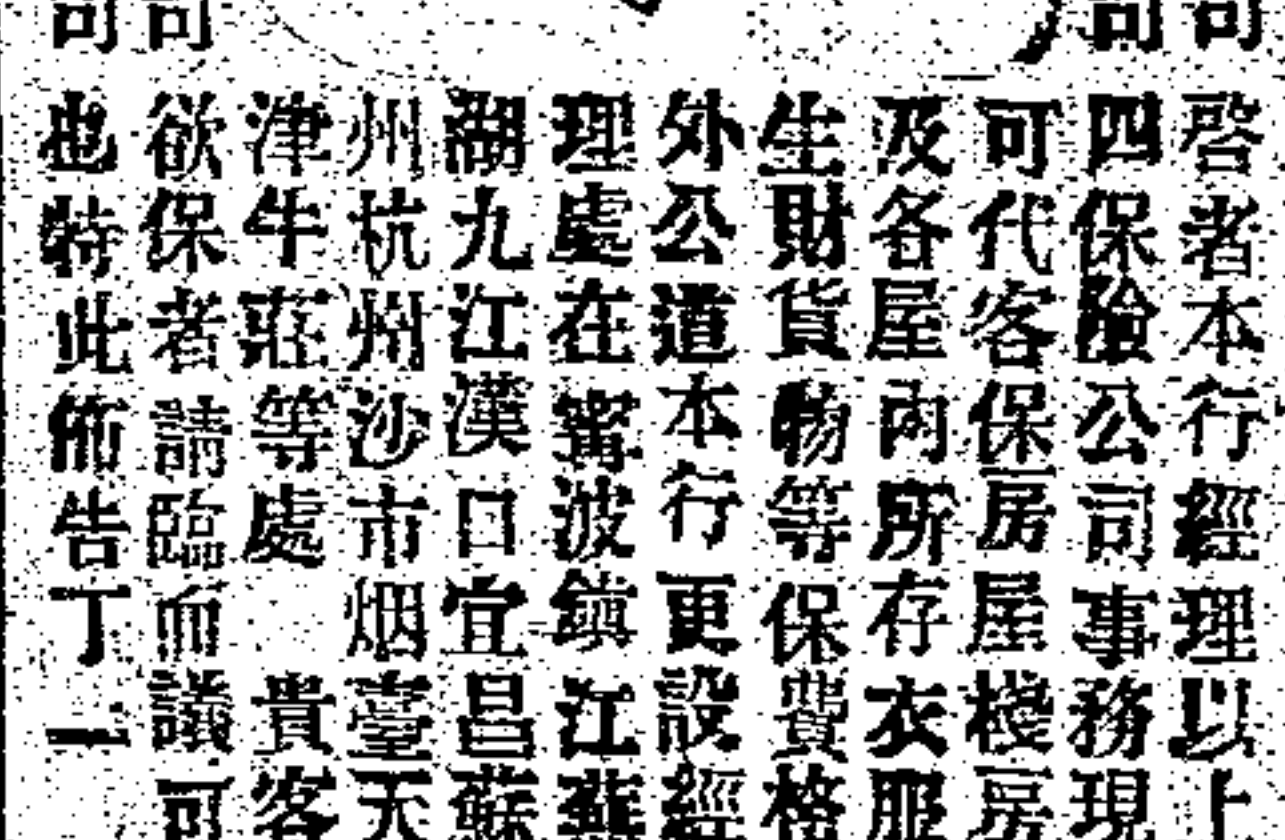 司
司
司
司
啓者本行經理以上
四保險公司事務現
可代客保房屋棧房
及各屋內所存衣服
生財貨物等保費格
外公道本行更設經
理處在寗波鎮江蕪
湖九江漢口宜昌蘇
州杭州沙市烟臺天
津牛莊等處 貴客
欲保者請臨面議可
也特此佈告丁一